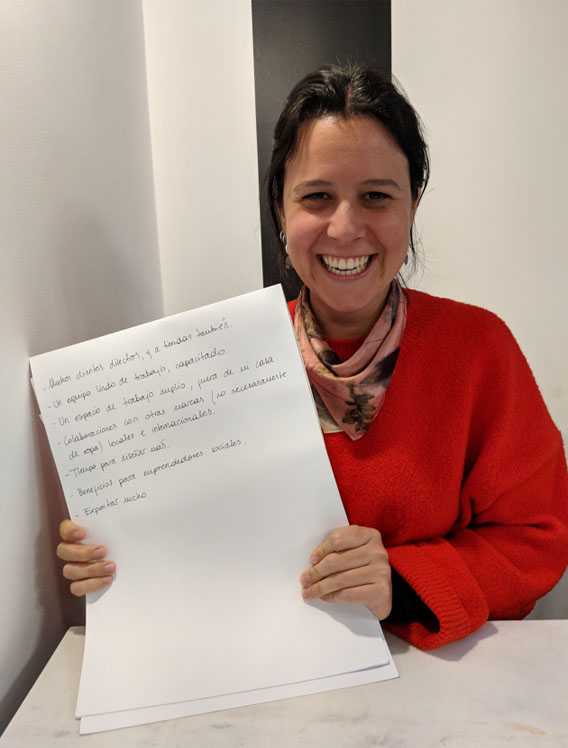 - Muchos clientes directos, y a tiendas también.
- Un equipo lindo de trabajo, capacitado.
- Un espacio de trabajo amplio, fuera de mi casa
- Colaboraciones con otras marcas (no necesariamente
de ropa) locales e internacionales.
- Tiempo para diseñar más.
- Beneficios para emprendedores sociales.
- Exportar mucho